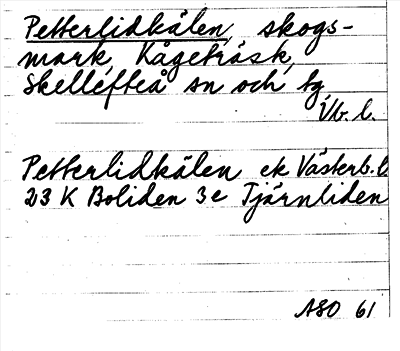 Petterlidkälen, skogs-
mark, Kågeträsk,
Skellefteå sn och tg,
Vb. l.
Petterlidkälen ek Västerb. l.
23 K Boliden 3e Tjärnliden
ASO 61